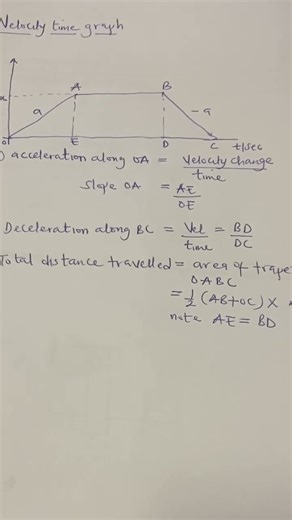 Velocity time graph
A B
a -a
O E D C t/sec
) acceleration along OA = Velocity change
time
Slope OA = AE
OE
Deceleration along BC = Vel = BD
time DC
Total distance travelled = area of trape
OABC
= 1/2 (AB+OC) X
note AE = BD